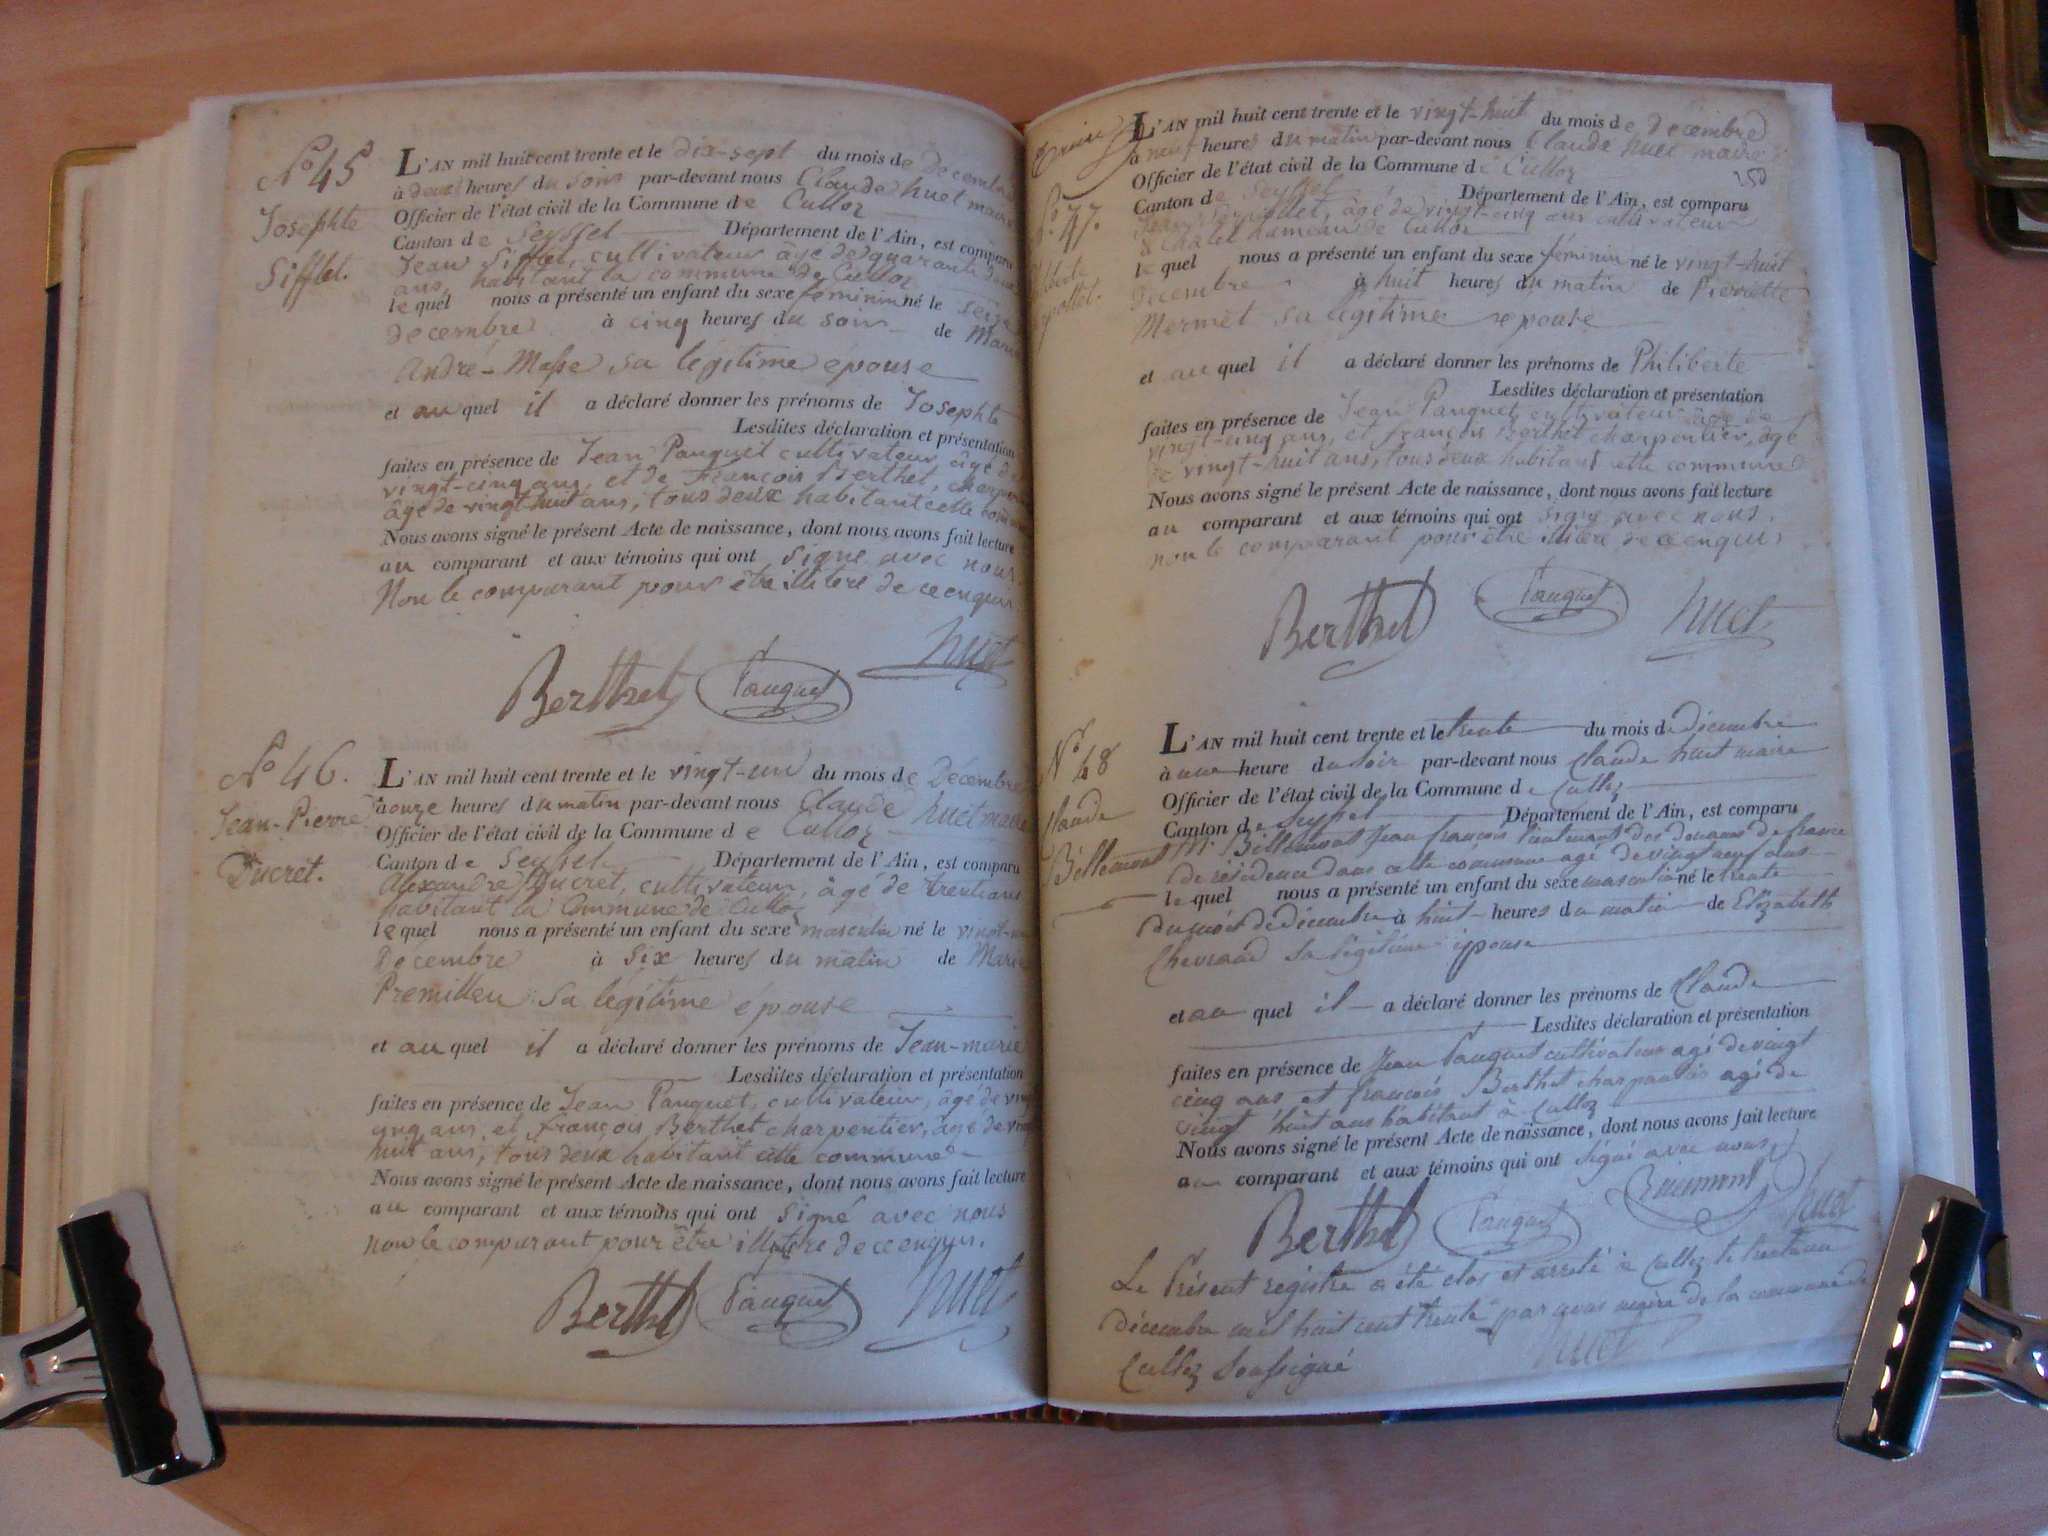 N° 45
Josephte
Sifflet.
L'AN mil huit cent trente et le dix-sept du mois de Décembre
à deux heures du soir par-devant nous Claude huet maire
Officier de l'état civil de la Commune de Culloz
Canton de Seyssel Département de l'Ain, est comparu
Jean Sifflet, cultivateur âgé de quarante deux
ans, habitant la commune de Culloz
lequel nous a présenté un enfant du sexe féminin né le seize
decembre à cinq heures du soir de Marie
André-Masse sa légitime épouse
et au quel il a déclaré donner les prénoms de Josephte
Lesdites déclaration et présentation
faites en présence de Jean Pauquet cultivateur âgé de
vingt-cinq ans, et de François Berthet, charpentier
âgé de vingt-huit ans, tous deux habitant cette commune
Nous avons signé le présent Acte de naissance, dont nous avons fait lecture
au comparant et aux témoins qui ont signé avec nous.
Non le comparant pour être illitere de ce enquis
Berthet Pauquet huet
N° 46.
Jean-Pierre
Ducret.
L'AN mil huit cent trente et le vingt-un du mois de Décembre
à onze heures du matin par-devant nous Claude huet maire
Officier de l'état civil de la Commune de Culloz
Canton de Seyssel Département de l'Ain, est comparu
Alexandre Ducret, cultivateur, âgé de trent ans
habitant la Commune de Culloz
lequel nous a présenté un enfant du sexe masculin né le vingt-un
Décembre à six heures du matin de Marie
Premilleu sa légitime épouse
et au quel il a déclaré donner les prénoms de Jean-marie
Lesdites déclaration et présentation
faites en présence de Jean Pauquet, cultivateur, âgé de vingt
cinq ans, et françois Berthet charpentier, âgé de vingt
huit ans, tous deux habitant cette commune
Nous avons signé le présent Acte de naissance, dont nous avons fait lecture
au comparant et aux témoins qui ont signé avec nous
non le comparant pour être illitere de ce enquis.
Berthet Pauquet huet
N° 47.
L'AN mil huit cent trente et le vingt-huit du mois de Décembre
à neuf heures du matin par-devant nous Claude huet maire
Officier de l'état civil de la Commune de Culloz
Canton de Seyssel Département de l'Ain, est comparu
Jean Serpollet, âgé de vingt-cinq ans cultivateur
à Chatel hameau de Culloz
lequel nous a présenté un enfant du sexe féminin né le vingt-huit
Decembre à huit heures du matin de Pierrette
Mermet sa légitime epouse
et au quel il a déclaré donner les prénoms de Philiberte
Lesdites déclaration et présentation
faites en présence de Jean Pauquet, cultivateur âgé de
vingt-cinq ans, et françois Berthet charpentier, âgé
de vingt-huit ans, tous deux habitant cette commune
Nous avons signé le présent Acte de naissance, dont nous avons fait lecture
au comparant et aux témoins qui ont signé avec nous.
non le comparant pour être de ce enquis
Berthet Pauquet huet
N° 48
Claude
Billemont
L'AN mil huit cent trente et le trente du mois de décembre
à une heure du soir par-devant nous Claude huet maire
Officier de l'état civil de la Commune de Culloz
Canton de Seyssel Département de l'Ain, est comparu
Mr Billemont Jean françois lieutenant des douanes de france
de résidence dans cette commune agé de vingt neuf ans
lequel nous a présenté un enfant du sexe masculin né le trente
du mois de décembre à huit heures du matin de Elizabeth
Chevrand sa légitime épouse
et au quel il a déclaré donner les prénoms de Claude
Lesdites déclaration et présentation
faites en présence de Jean Pauquet cultivateur agé de vingt
cinq ans et françois Berthet charpantié agé de
vingt huit ans habitant à Culloz
Nous avons signé le présent Acte de naissance, dont nous avons fait lecture
au comparant et aux témoins qui ont signé avec nous
Berthet Pauquet huet
Le Présent registre a été clos et arreté à Culloz le trente un
décembre mil huit cent trente par nous maire de la commune de
Culloz Soussigné huet